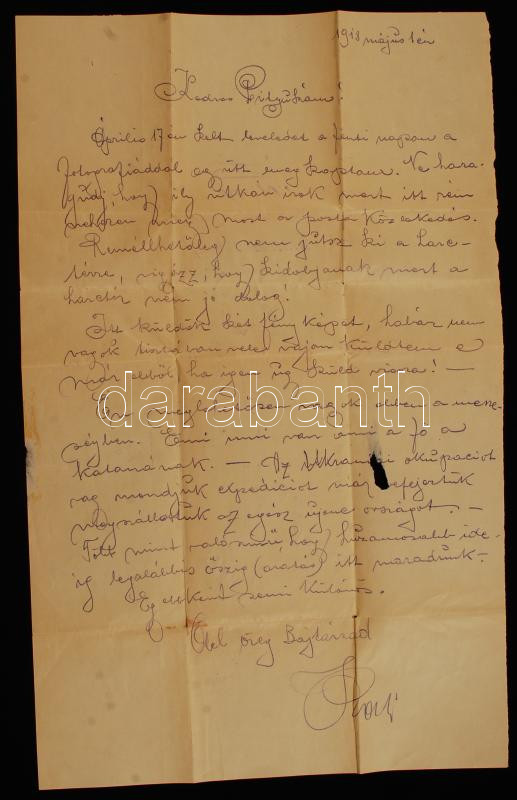 1918 május 1 én
Kedves
Április 17 én kelt leveledet a fenti napon a
fotografiáddal együtt meg kaptam. Ne hara-
gudj, hogy ily ritkán irok mert itt rém
nehezen megy most a posta közlekedés.
Remélhetőleg nem jutsz ki a harc-
térre, vigyázz, hogy kidobjanak mert a
harctér nem jó dolog!
Itt küldök két fényképet, habár nem
vagok tisztában vele vajon küldtem e
már ebből ha igen úgy küld vissza! —
darabanth
Én meglehetősen vagyok ebben a messze-
ségben. Enni inni van ami a fő a
katonának. — Az Ukrainiai okupációt
vag mondjuk expedíciót már befejeztük
megszállottuk az egész országot. —
Több mint valószinű, hogy huzamosabb ide-
ig legalábbis őszig (aratás) itt maradunk. —
Egyebként semi különös.
Ölel öreg Bajtársad